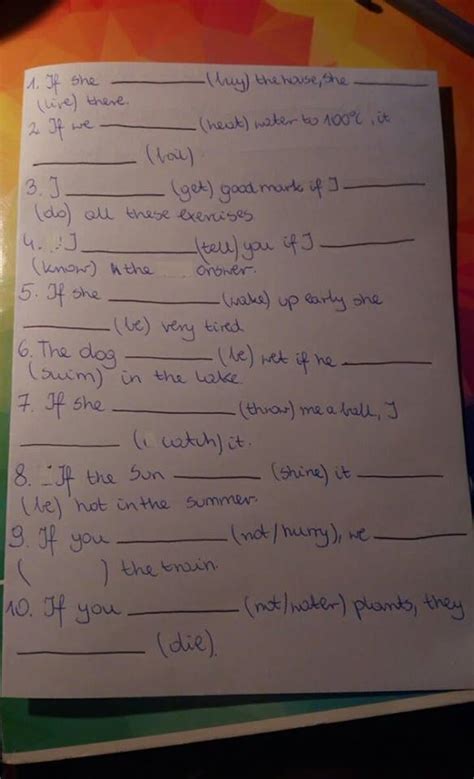 1. If she ________ (buy) the house, she ________
(live) there.
2. If we ________ (heat) water to 100°C, it
________ (boil)
3. I ________ (get) good mark if I ________
(do) all these exercises
4. I ________ (tell) you if I ________
(know) the answer.
5. If she ________ (wake) up early she
________ (be) very tired
6. The dog ________ (be) wet if he ________
(swim) in the lake.
7. If she ________ (throw) me a ball, I
________ (watch) it.
8. If the sun ________ (shine) it ________
(be) hot in the summer.
9. If you ________ (not/hurry), we ________
( ) the train.
10. If you ________ (not/water) plants, they
________ (die).